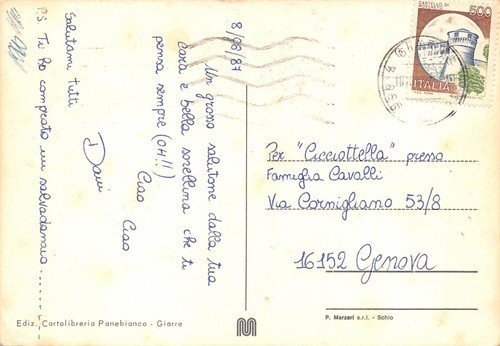 8/08/87
Un grosso salutone dalla tua
cara e bella sorellina che ti
pensa sempre (OH!!)
Ciao
Ciao
Dani
Salutami tutti
P.S. Ti ho comprato un salvadanaio.......
CASTELLO DI
500
ITALIA
Per "Cicciottella" presso
Famiglia Cavalli
Via Cornigliano 53/8
16152 Genova
Ediz. Cartolibreria Panebianco - Giarre
P. Marzari s.r.l. - Schio